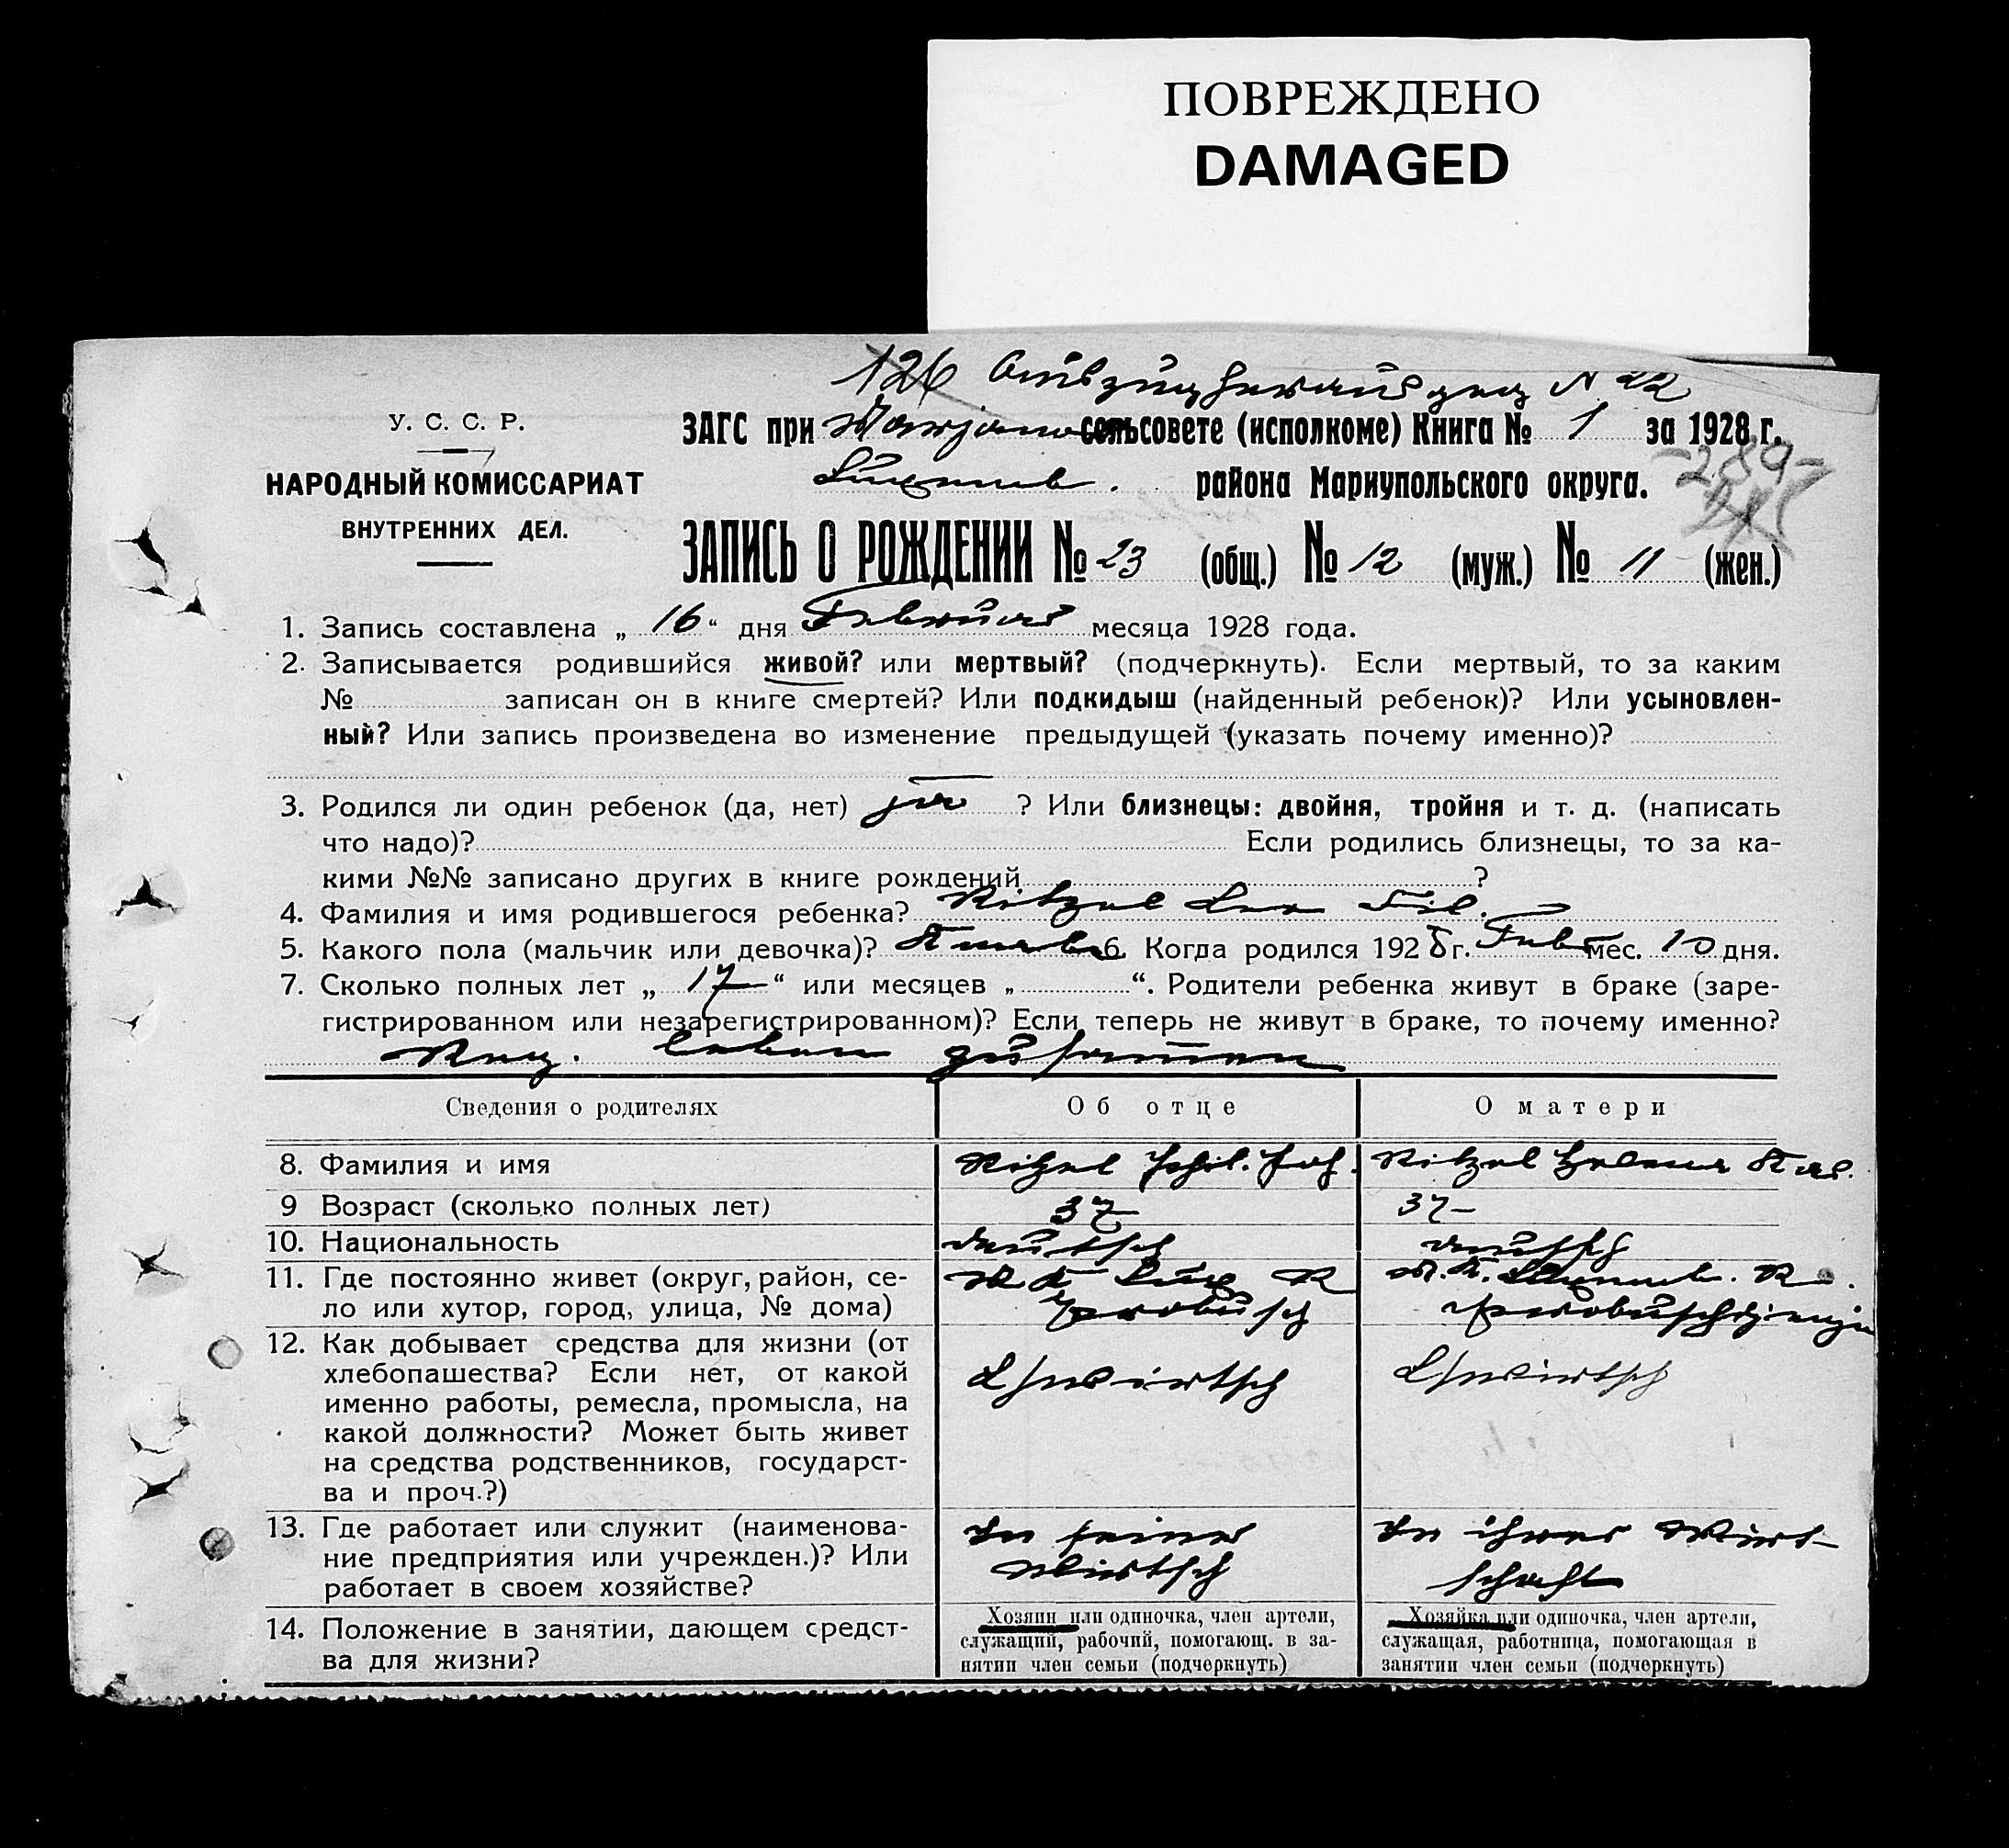 ПОВРЕЖДЕНО
DAMAGED
126 Auszug herausgeg N 22
У. С. С. Р.
НАРОДНЫЙ КОМИССАРИАТ
ВНУТРЕННИХ ДЕЛ.
ЗАГС при Marjano сельсовете (исполкоме) Книга № 1 за 1928 г.
района Мариупольского округа.
-289-
ЗАПИСЬ О РОЖДЕНИИ № 23 (общ.) № 12 (муж.) № 11 (жен.)
1. Запись составлена „ 16 “ дня Februar месяца 1928 года.
2. Записывается родившийся живой? или мертвый? (подчеркнуть). Если мертвый, то за каким
№ записан он в книге смертей? Или подкидыш (найденный ребенок)? Или усыновлен-
ный? Или запись произведена во изменение предыдущей (указать почему именно)?
3. Родился ли один ребенок (да, нет) ja ? Или близнецы: двойня, тройня и т. д. (написать
что надо)? Если родились близнецы, то за ка-
кими №№ записано других в книге рождений ?
4. Фамилия и имя родившегося ребенка? Ritzel Leo Fil.
5. Какого пола (мальчик или девочка)? Knabe 6. Когда родился 1928 г. Feb мес. 10 дня.
7. Сколько полных лет „ 17 “ или месяцев „ “. Родители ребенка живут в браке (заре-
гистрированном или незарегистрированном)? Если теперь не живут в браке, то почему именно?
Reg. leben zusammen
Сведения о родителях Об отце О матери
8. Фамилия и имя Ritzel Phil. Joh. Ritzel Helena Kas.
9 Возраст (сколько полных лет) 37 37
10. Национальность deutsch deutsch
11. Где постоянно живет (округ, район, се-
ло или хутор, город, улица, № дома)
M K Lux R
M. K. R.
12. Как добывает средства для жизни (от
хлебопашества? Если нет, от какой
именно работы, ремесла, промысла, на
какой должности? Может быть живет
на средства родственников, государст-
ва и проч.?)
L/wirtsch L/wirtsch
13. Где работает или служит (наименова-
ние предприятия или учрежден.)? Или
работает в своем хозяйстве?
In seiner
Wirtsch
In ihrer Wirt-
schaft
14. Положение в занятии, дающем средст-
ва для жизни?
Хозяин или одиночка, член артели,
служащий, рабочий, помогающ. в за-
нятии член семьи (подчеркнуть)
Хозяйка или одиночка, член артели,
служащая, работница, помогающая в
занятии член семьи (подчеркнуть)